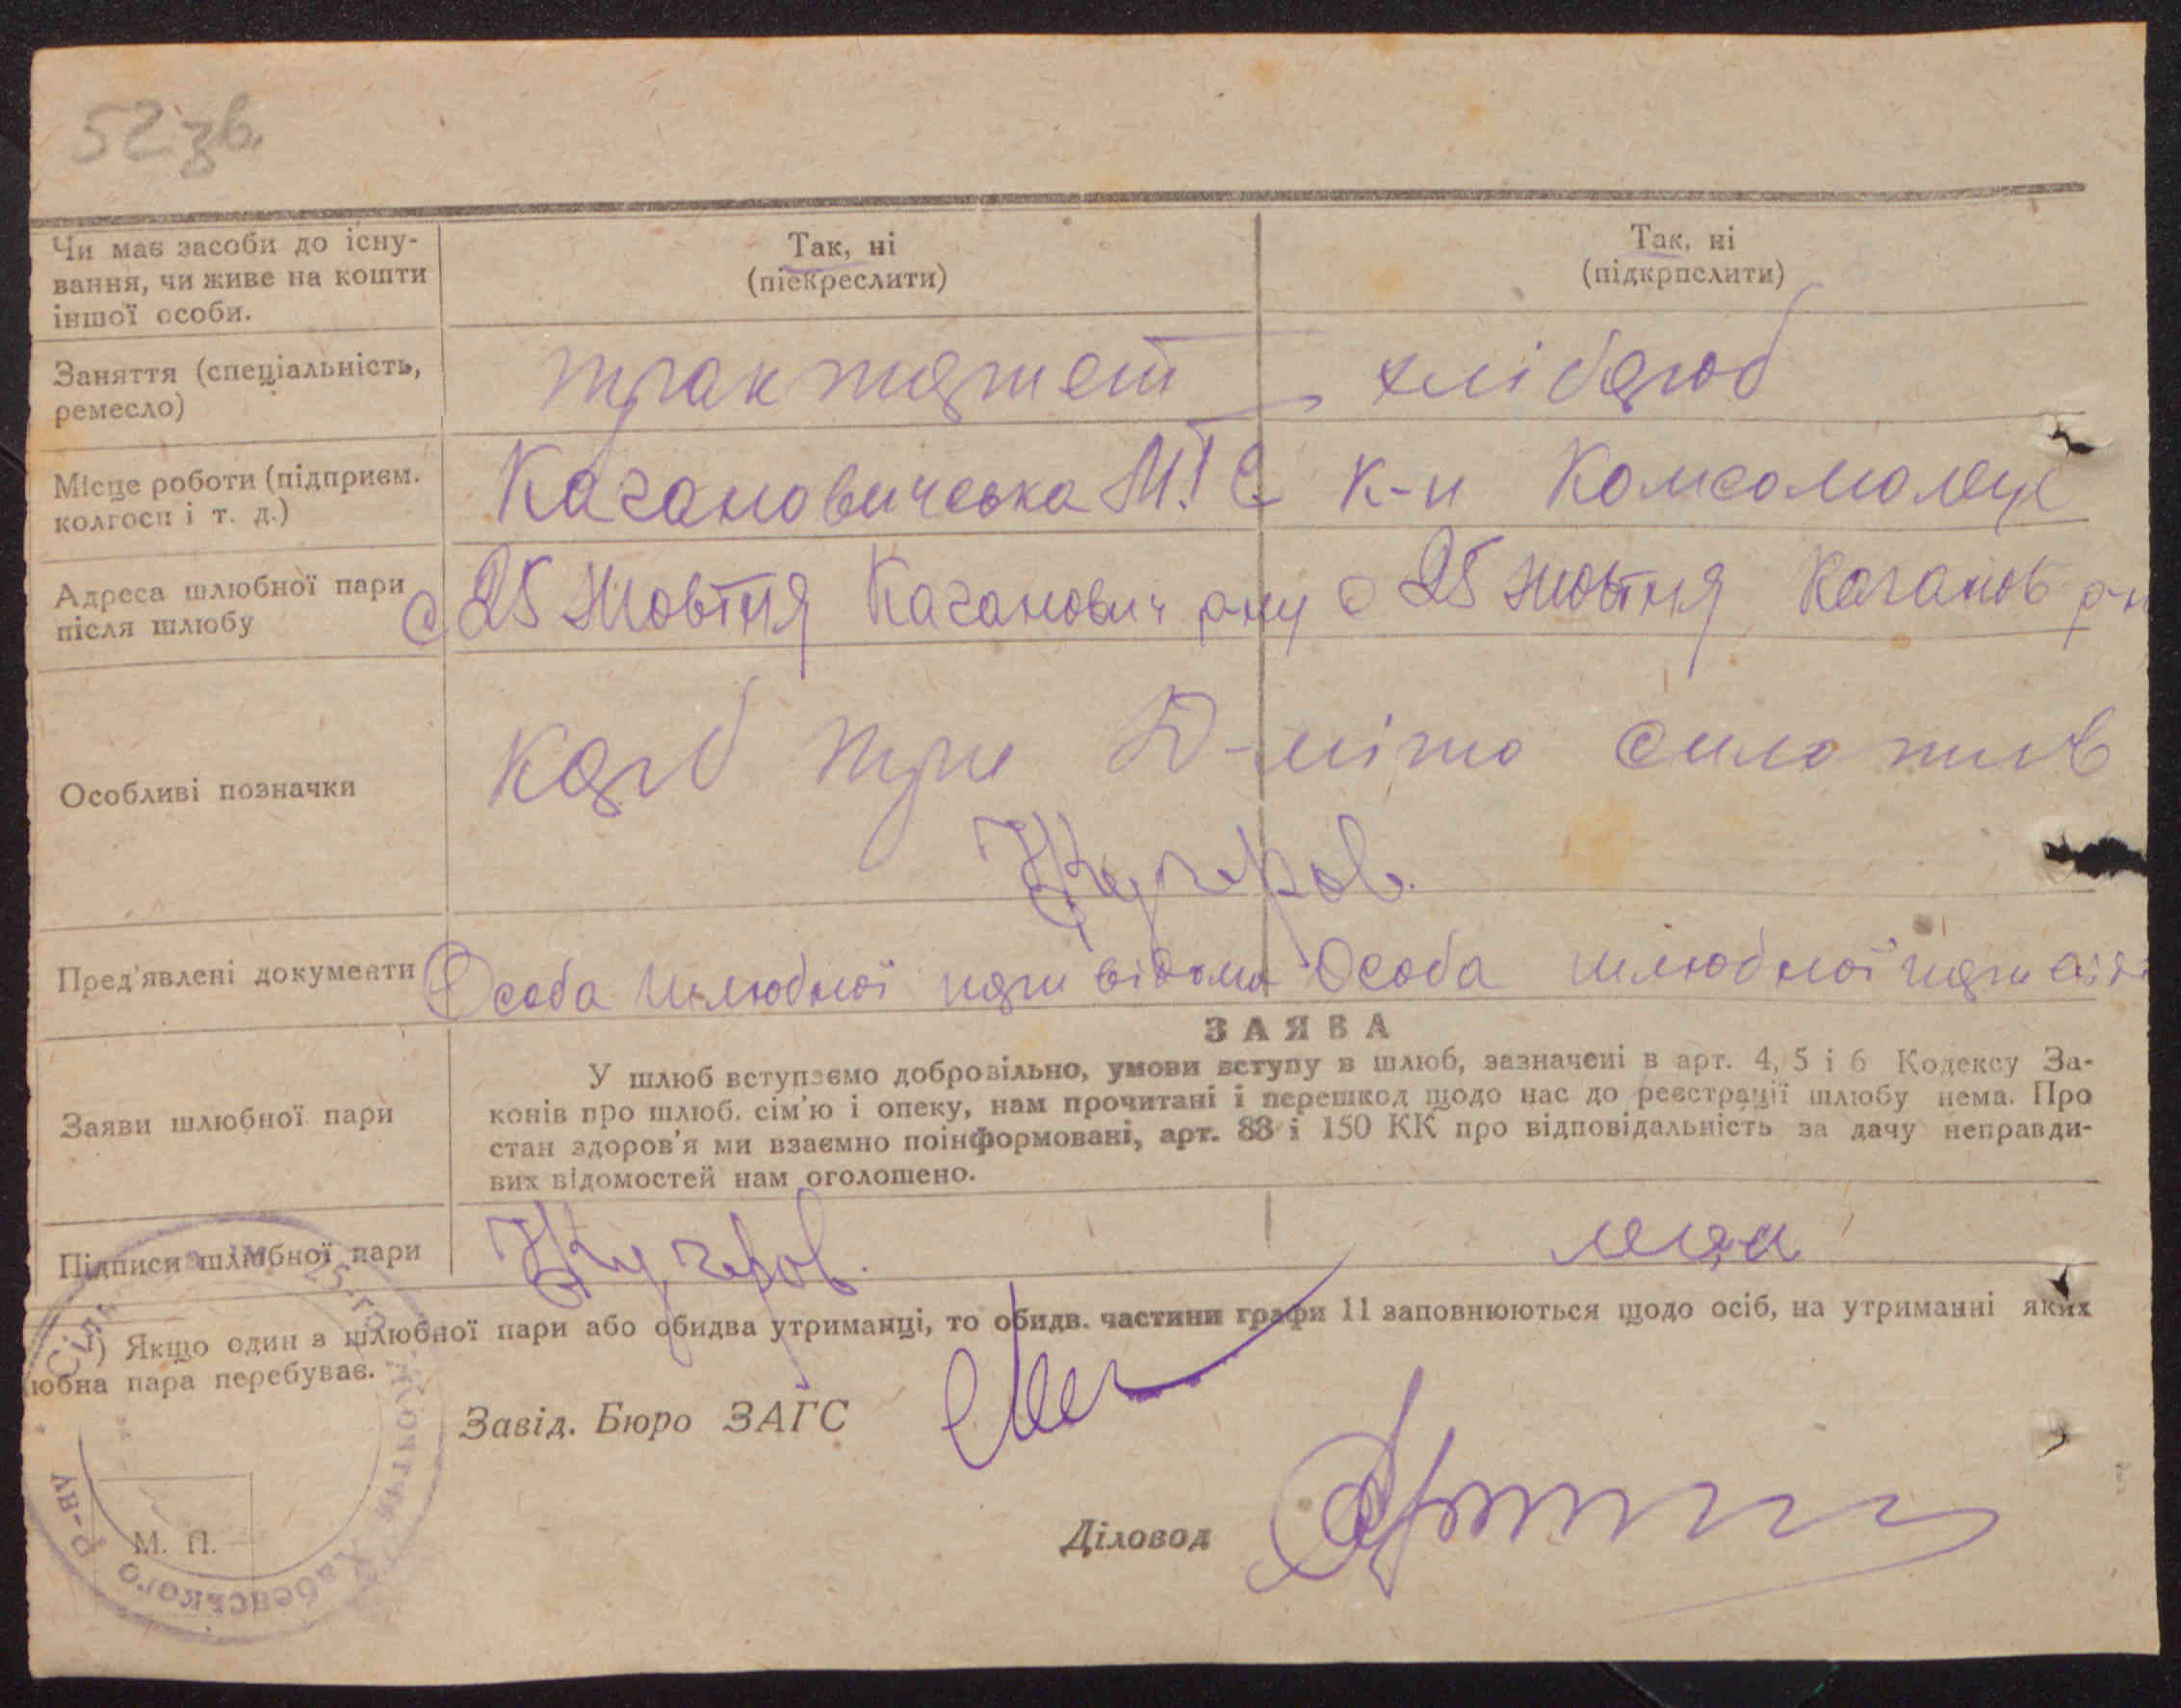 52 зв.
Чи має засоби до існу-
вання, чи живе на кошти
іншої особи.
Так, ні
(піекреслити)
Так, ні
(підкрпслити)
Заняття (спеціальність,
ремесло)
трактарист
хлібороб
Місце роботи (підприєм.
колгосп і т. д.)
Кагановичська М.Т.С
к-п Комсомолец
Адреса шлюбної пари
після шлюбу
с 25 Жовтня Каганович р-ну
с 25 Жовтня Каганов р-н
Особливі позначки
Карб три
Кучеров.
Пред'явлені документи
Особа шлюбної пари відома
Особа шлюбної пари
Заяви шлюбної пари
ЗАЯВА
У шлюб вступаємо добровільно, умови вступу в шлюб, зазначені в арт. 4, 5 і 6 Кодексу За-
конів про шлюб. сім'ю і опеку, нам прочитані і перешкод щодо нас до реєстрації шлюбу нема. Про
стан здоров'я ми взаємно поінформовані, арт. 88 і 150 КК про відповідальність за дачу неправди-
вих відомостей нам оголошено.
Підписи шлюбної пари
Кучеров.
¹) Якщо один з шлюбної пари або обидва утриманці, то обидв. частини графи 11 заповнюються щодо осіб, на утриманні яких
юбна пара перебуває.
Завід. Бюро ЗАГС
Діловод
М. П.
25-го Жовтня Хабенського р-ну